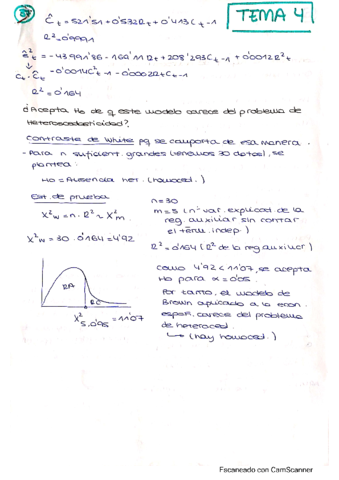 37
TEMA 4
Ĉt = 521'51 + 0'532Rt + 0'413Ct-1
R² = 0'9991
ê²t = -43991'86 - 160'11Rt + 208'293Ct-1 + 0'0012R²t
Ct - Ĉt - 0'0014C²t-1 - 0'0002RtCt-1
R² = 0'164
¿Acepta Ho de q este modelo carece del problema de
Heteroscedasticidad?
Contraste de White pq se comporta de esa manera.
- Para n suficient. grandes (tenemos 30 datos), se
plantea:
Ho = Ausencia het. (homoced.)
Est. de prueba
X²w = n · R² ~ X²m
X²w = 30 · 0'164 = 4'92
n = 30
m = 5 (nº var. explicad de la
reg. auxiliar sin contar
el térm. indep.)
R² = 0'164 (R² de la reg auxiliar)
RA
RC
X²5,0'95 = 11'07
como 4'92 < 11'07, se acepta
Ho para α = 0'05.
Por tanto, el modelo de
Brown aplicado a la econ.
españ. carece del problema
de heteroced.
↳ (hay homoced.)
Escaneado con CamScanner